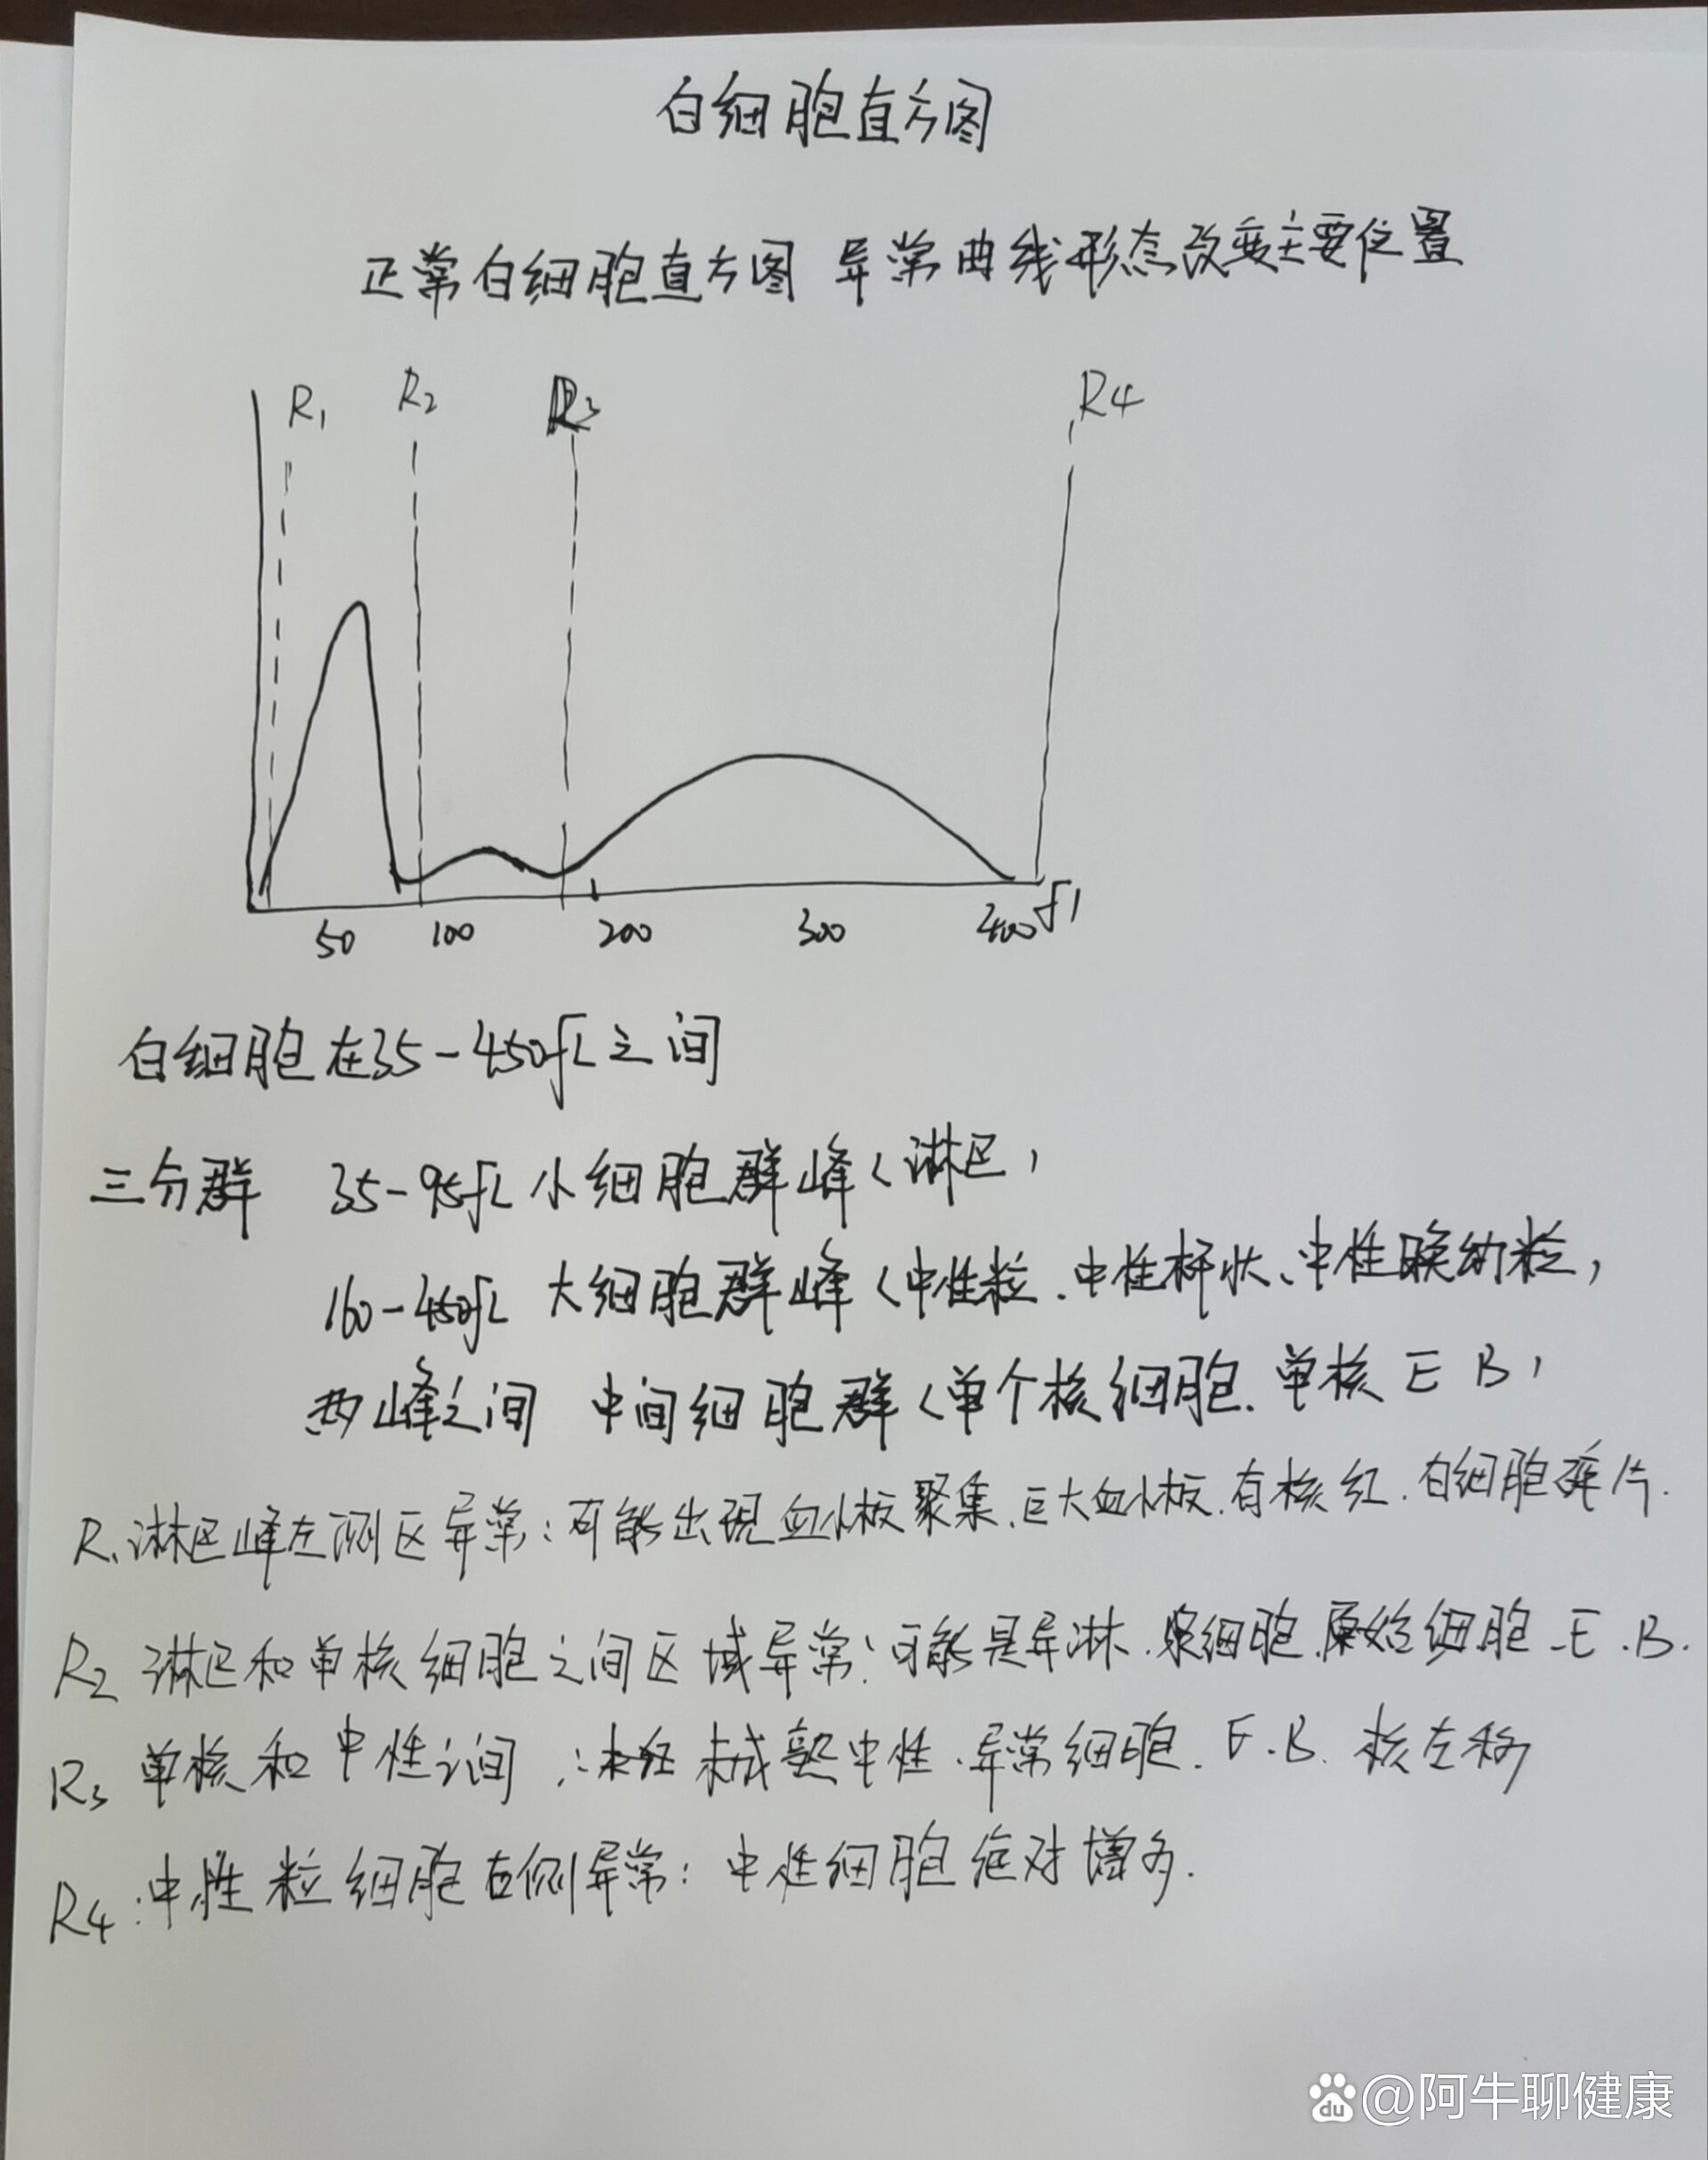 白细胞直方图
正常白细胞直方图 异常曲线形态改变主要位置
R1 R2 R3 R4
50 100 200 300 400 fl
白细胞在35-450fL之间
三分群 35-95fL 小细胞群峰(淋巴)
160-450fL 大细胞群峰(中性粒、中性杆状、中性晚幼粒)
两峰之间 中间细胞群(单个核细胞、单核 E B)
R1淋巴峰左侧区异常:可能出现血小板聚集、巨大血小板、有核红、白细胞碎片.
R2 淋巴和单核细胞之间区域异常:可能是异淋、浆细胞、原始细胞、E.B.
R3 单核和中性之间:未成熟中性、异常细胞、E.B. 核左移
R4:中性粒细胞右侧异常:中性细胞绝对增多.
du @阿牛聊健康